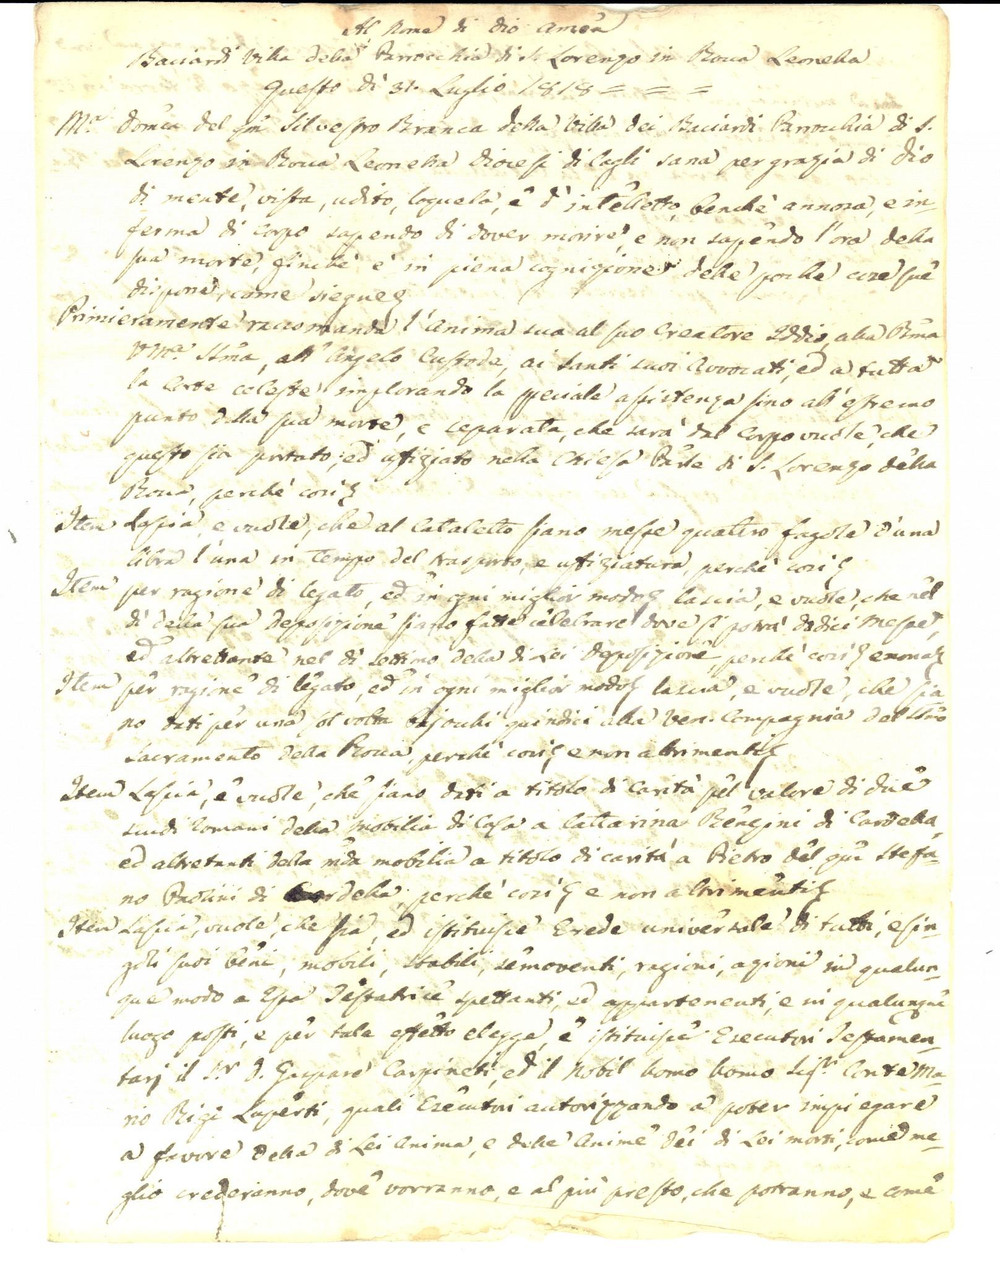 Al Nome di Dio Amen
Baciardi Villa della Parrocchia di S. Lorenzo in Rocca Leonella
Questo dì 31. Luglio 1818 = = =
M.ª Dom.ca del qm̃ Silvestro Branca della Villa dei Baciardi Parrochia di S.
Lorenzo in Rocca Leonella Diocesi di Cagli sana per grazia di Dio
di mente, vista, udito, loquela, e d'intelletto, benchè annosa, e in-
ferma di corpo sapendo di dover morire, e non sapendo l'ora della
sua morte, finchè è in piena cognizione delle poche cose sue
dispone, come siegue
Primieramente raccomanda l'Anima sua al suo Creatore Iddio, alla Bma
V. Mª Ssma, all'Angelo Custode, ai Santi suoi Avvocati, ed a tutta
la Corte celeste implorando la speciale assistenza sino all'estremo
punto della sua morte, e separata, che sarà dal Corpo vuole, che
questo sia portato, ed uffiziato nella Chiesa Parle di S. Lorenzo della
Rocca, perchè così
Item Lascia, e vuole, che al Cataletto siano messe quattro fagole d'una
libra l'una in tempo del trasporto, e uffiziatura, perchè così
Item per ragione di legato, ed in ogni miglior modo lascia, e vuole, che nel
dì della sua Deposizione siano fatte celebrare dove si potrà dodici Messe,
ed altrettante nel dì settimo della di Lei Deposizione perchè così e non al
Item per ragione di legato, ed in ogni miglior modo lascia, e vuole, che sia
no dati per una sol volta bajocchi quindici alla Ven: Compagnia del Ssmo
Sacramento della Rocca, perchè così e non altrimenti
Item Lascia, e vuole, che siano dati a titolo di Carità pel valore di due
scudi Romani della mobilia di Casa a Cattarina Bengini di Cardella,
ed altretanti della mda mobilia a titolo di carità a Pietro del qm̃ Stefa-
no Paolini di Cardella, perchè così e non altrimenti
Item Lascia, vuole, che sia, ed istituisce Erede universale di tutti, e sin-
goli suoi beni, mobili, stabili, semoventi, ragioni, azioni in qualun-
que modo a Essa Testatrice spettanti, ed appartenenti, e in qualunque
luogo posti, e per tale effetto elegge, e istituisce Esecutori Testamen-
tarj il Sr. D. Gasparo Carpineti, ed il Nobil Uomo Uomo Sigr. Conte Ma-
rio Rigi Luperti, quali Esecutori autorizzando a poter impiegare
a favore della di Lei Anima, e delle Anime dei di Lei morti, come me-
glio crederanno, dove vorranno, e al più presto, che potranno, e come